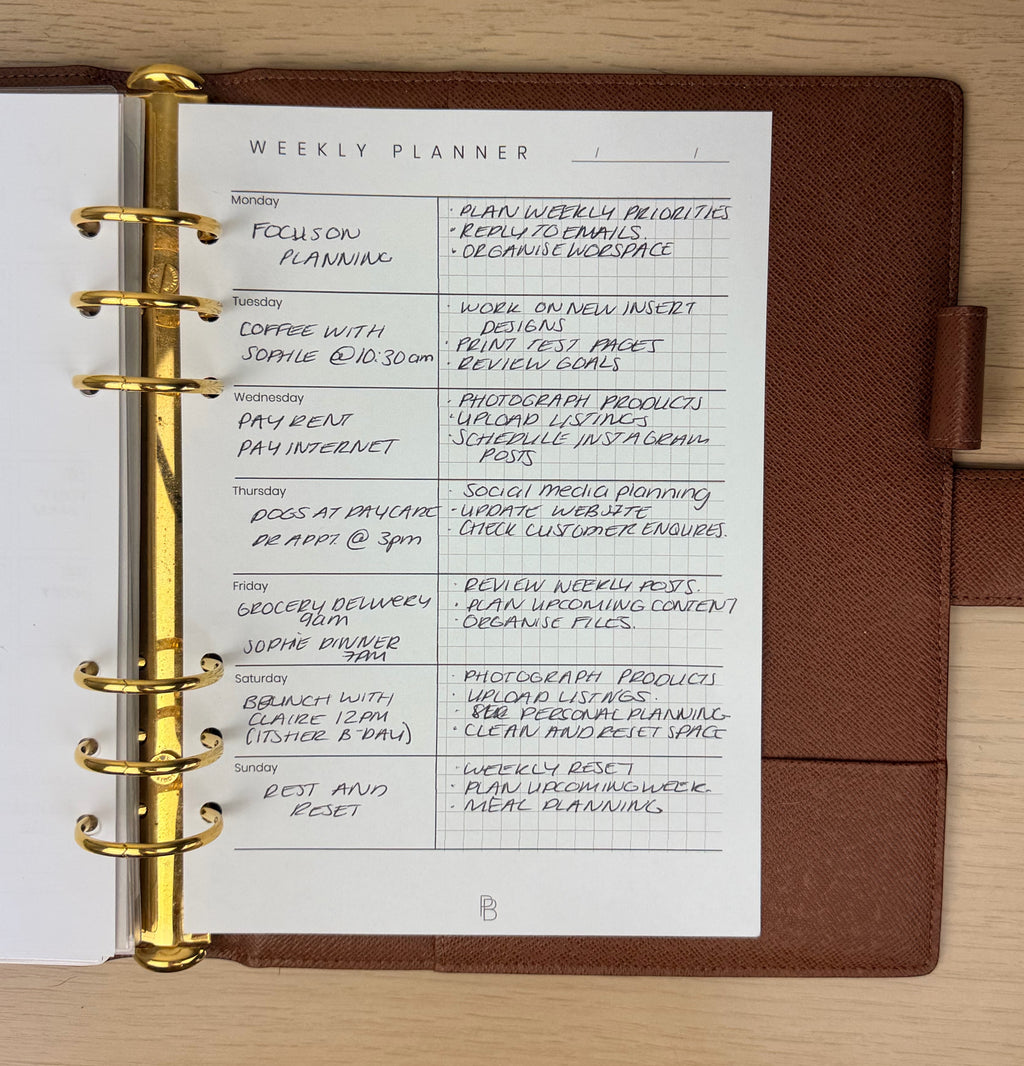 WEEKLY PLANNER / /
Monday
FOCUS ON
PLANNING
· PLAN WEEKLY PRIORITIES
· REPLY TO EMAILS.
· ORGANISE WORSPACE
Tuesday
COFFEE WITH
SOPHIE @ 10:30am
· WORK ON NEW INSERT
DESIGNS
· PRINT TEST PAGES
· REVIEW GOALS
Wednesday
PAY RENT
PAY INTERNET
· PHOTOGRAPH PRODUCTS
· UPLOAD LISTINGS
· SCHEDULE INSTAGRAM
POSTS
Thursday
DOGS AT DAYCARE
DR APPT. @ 3pm
· Social media planning
· UPDATE WEBSITE
· CHECK CUSTOMER ENQUIRES.
Friday
GROCERY DELIVERY
9am
SOPHIE DINNER
7PM
· REVIEW WEEKLY POSTS.
· PLAN UPCOMING CONTENT
· ORGANISE FILES.
Saturday
BRUNCH WITH
CLAIRE 12PM
(ITS HER B-DAY)
· PHOTOGRAPH PRODUCTS
· UPLOAD LISTNGS.
· PERSONAL PLANNING
· CLEAN AND RESET SPACE
Sunday
REST AND
RESET
· WEEKLY RESET
· PLAN UPCOMING WEEK.
· MEAL PLANNING
PB